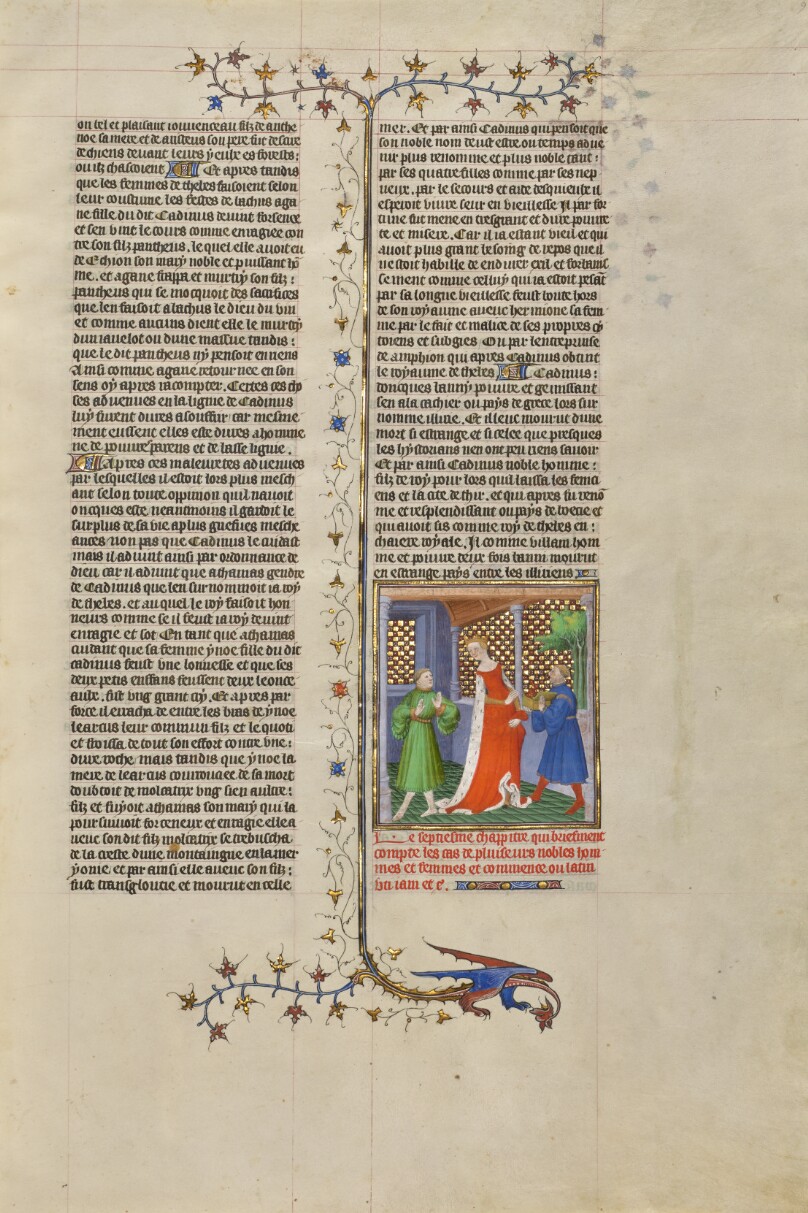 ou bel et plaisant iouuenceau filz de anthe
noe sa mere et de austeus son pere fut desire
de chiens deuant leurs yeulx es forestz:
ou ilz chassoient Et apres tandis
que les femmes de thebes faisoient selon
leur coustume. les festes de bachus aga
ne fille du dit Cadmus deuint forsence
et sen vint le cours comme enragiee con
tre son filz pantheus. le quel elle auoit eu
de Echion son mary noble et puissant hō
me. et agane frappa et murtry son filz:
pantheus qui se mocquoit des sacrifices
que len faisoit a bachus le dieu du vin
et comme aucuns dient elle le murtry
dun iauelot ou dune massue tandis:
que le dit pantheus ny pensoit en riens
Ainsi comme agane retournee en son
sens oy apres racompter. Certes ces cho
ses aduenues en la ligne de Cadmus
luy furent dures a souffrir car mesme
ment eussent elles este dures a homme
ne de poures parens et de basse lignie.
Apres ces maleuretes aduenues
par lesquelles il estoit lors plus mesch
ant selon toute oppinion quil nauoit
oncques este. neantmoins il gardoit le
surplus de sa vie a plus griefues mesche
ances non pas que Cadmus le cuidast
mais il aduint ainsi par ordonnance de
dieu car il aduint que athamas gendre
de Cadmus que len surnommoit ia roy
de thebes. et au quel le roy faisoit hon
neurs comme se il feust ia roy deuint
enragie et sot En tant que athamas
cuidant que sa femme ynoe fille du dit
cadmus feust vne lionnesse et que ses
deux petis enffans feussent deux leonce
aulx. fist vng grant cry. Et apres par
force il erracha de entre les bras de ynoe
learcus leur commun filz et le quoti
et froissa de tout son effort contre vne:
dure roche mais tandis que ynoe la
mere de learcus courroucee de sa mort
doubtoit de molcatrix vng sien aultre:
filz et fuyoit athamas son mary qui la
poursuiuoit forceneur et enragie elle a
uecuc son dit filz molcatrix se trebuscha
de la creste dune montaingne en la mer
yonie. et par ainsi elle auecuc son filz:
fust transgloutie et mourut en celle
mer. Et par ainsi Cadmus qui pensoit que
son noble nom deust estre ou temps adue
nir plus renomme et plus noble tant:
par ses quatre filles comme par ses nep
ueux. par le secours et aide desquieulx il
esperoit viure seur en vieillesse Il par for
tune fut mene en tresgrant et dure pourete
te et misere. Car il ia estant vieil et qui
auoit plus grant besoing de repos que il
nestoit habille de endurer exil et fortunee
sement comme celluy qui ia estoit pesāt
par sa longue vieillesse feust boute hors
de son royaume auecuc hermione sa fem
me par le fait et malice de ses propres cy
toiens et subgies Ou par lentreprinse
de amphion qui apres Cadmus obtint
le royaume de thebes Cadmus:
doncques banny poure et gemissant
sen ala cachier ou pays de grece lors sur
nomme illirie. Et illeuc mourut dune
mort si estrange et si celee que presques
les hystoriens nen ont peu riens sauoir
Et par ainsi Cadmus noble homme:
filz de roy pour lors quil laissa les fenici
ens et la cite de thir. et qui apres fu renō
me et resplendissant ou pays de boece et
qui auoit sis comme roy de thebes en:
chaiere royale. Il comme villain hom
me et poure deux fois banni mourut
en estrange pays entre les illiriens
Le septiesme chappitre qui briefment
compte les cas de pluseurs nobles hom
mes et femmes et commence ou latin
vn iam et c̄.